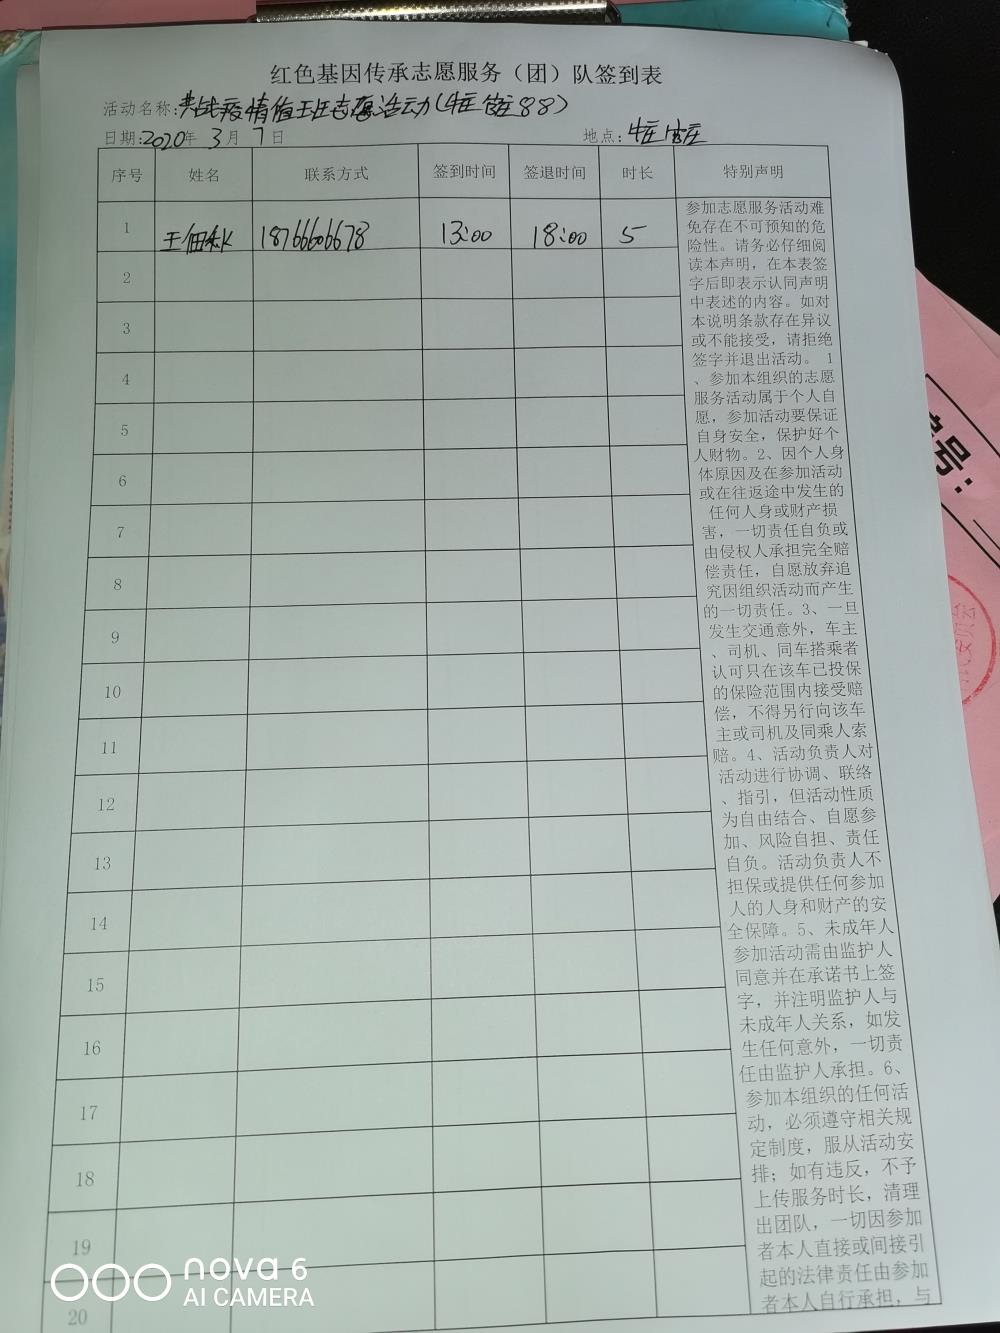 红色基因传承志愿服务（团）队签到表
活动名称:共战疫情值班志愿活动
日期:2020年 3月 7日 地点:
序号 姓名 联系方式 签到时间 签退时间 时长 特别声明
1 王 18766606678 13:00 18:00 5
2
3
4
5
6
7
8
9
10
11
12
13
14
15
16
17
18
19
20
参加志愿服务活动难
免存在不可预知的危
险性。请务必仔细阅
读本声明，在本表签
字后即表示认同声明
中表述的内容。如对
本说明条款存在异议
或不能接受，请拒绝
签字并退出活动。 1
、参加本组织的志愿
服务活动属于个人自
愿，参加活动要保证
自身安全，保护好个
人财物。2、因个人身
体原因及在参加活动
或在往返途中发生的
任何人身或财产损
害，一切责任自负或
由侵权人承担完全赔
偿责任，自愿放弃追
究因组织活动而产生
的一切责任。3、一旦
发生交通意外，车主
、司机、同车搭乘者
认可只在该车已投保
的保险范围内接受赔
偿，不得另行向该车
主或司机及同乘人索
赔。4、活动负责人对
活动进行协调、联络
、指引，但活动性质
为自由结合、自愿参
加、风险自担、责任
自负。活动负责人不
担保或提供任何参加
人的人身和财产的安
全保障。5、未成年人
参加活动需由监护人
同意并在承诺书上签
字，并注明监护人与
未成年人关系，如发
生任何意外，一切责
任由监护人承担。6、
参加本组织的任何活
动，必须遵守相关规
定制度，服从活动安
排；如有违反，不予
上传服务时长，清理
出团队，一切因参加
者本人直接或间接引
起的法律责任由参加
者本人自行承担，与
号：
nova 6
AI CAMERA